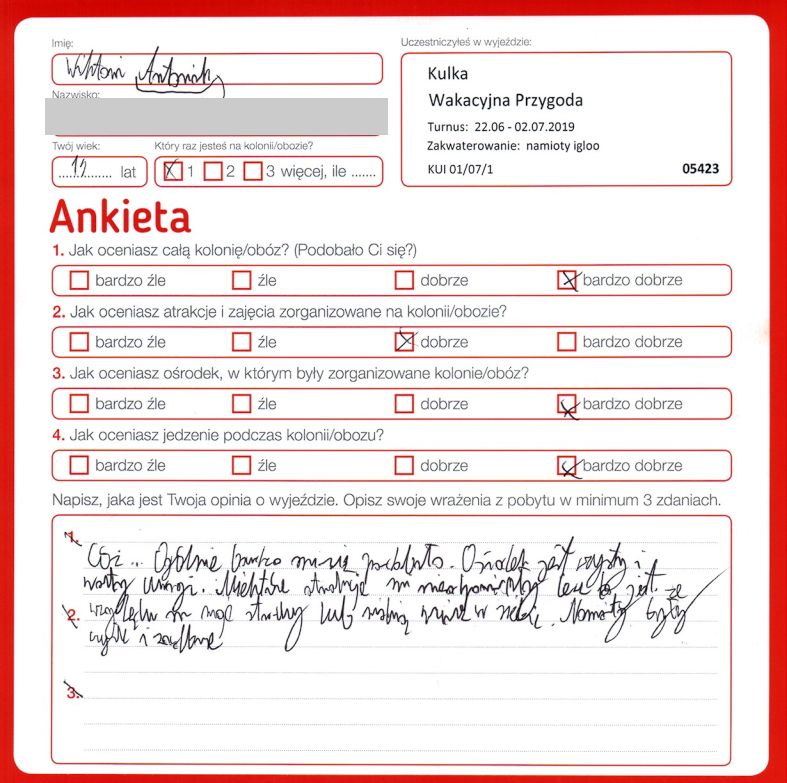 Imię:
Wiktoria Antonina
Nazwisko:
Twój wiek:
12 lat
Który raz jesteś na kolonii/obozie?
1 2 3 więcej, ile .......
Uczestniczyłeś w wyjeździe:
Kulka
Wakacyjna Przygoda
Turnus: 22.06 - 02.07.2019
Zakwaterowanie: namioty igloo
KUI 01/07/1 05423
Ankieta
1. Jak oceniasz całą kolonię/obóz? (Podobało Ci się?)
bardzo źle źle dobrze bardzo dobrze
2. Jak oceniasz atrakcje i zajęcia zorganizowane na kolonii/obozie?
bardzo źle źle dobrze bardzo dobrze
3. Jak oceniasz ośrodek, w którym były zorganizowane kolonie/obóz?
bardzo źle źle dobrze bardzo dobrze
4. Jak oceniasz jedzenie podczas kolonii/obozu?
bardzo źle źle dobrze bardzo dobrze
Napisz, jaka jest Twoja opinia o wyjeździe. Opisz swoje wrażenia z pobytu w minimum 3 zdaniach.
1.
Cóż... Ogólnie bardzo mi się podobało. Ośrodek jest czysty i
warty uwagi. Niektóre atrakcje lecz to jest ze
2. względu na moje lub w siebie. Namioty były
czyste i zadbane
3.